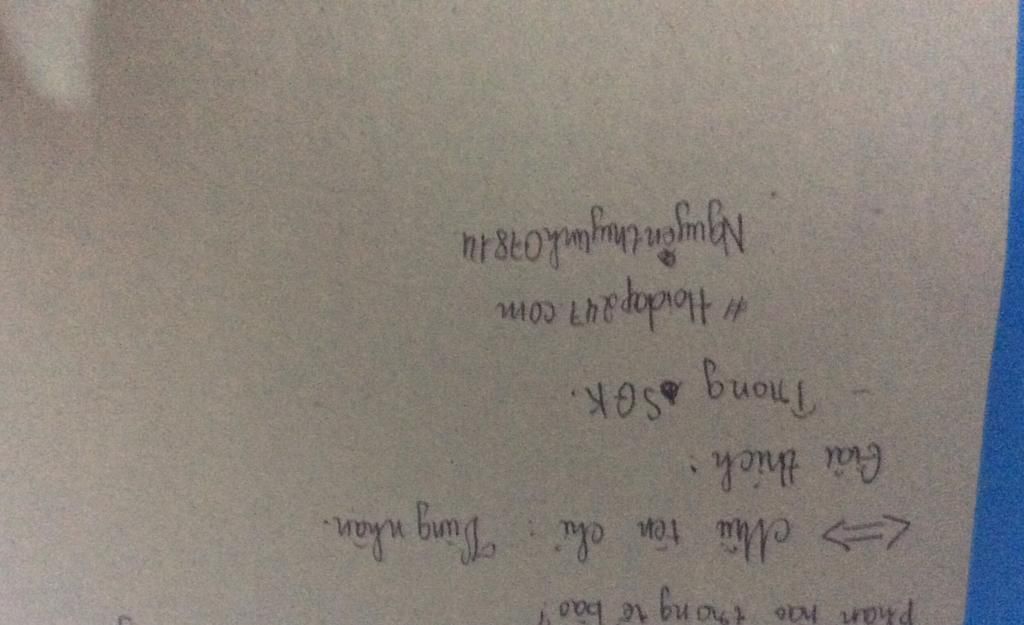 phần nào trong tế bào?
<=> Mũi tên chỉ : Vùng nhân.
Giải thích :
- Trong SGK.
# Hoidap247.com
Nguyễnthuylinh07814